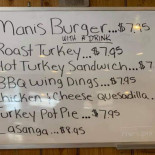 Manis Burger...$7.95
WITH A DRINK
Roast Turkey...$7.95
Hot Turkey Sandwich...$7
BBQ Wing Dings...$7.95
Chicken & Cheese Quesadilla...
Turkey Pot Pie...$7.95
asagna...$8.95